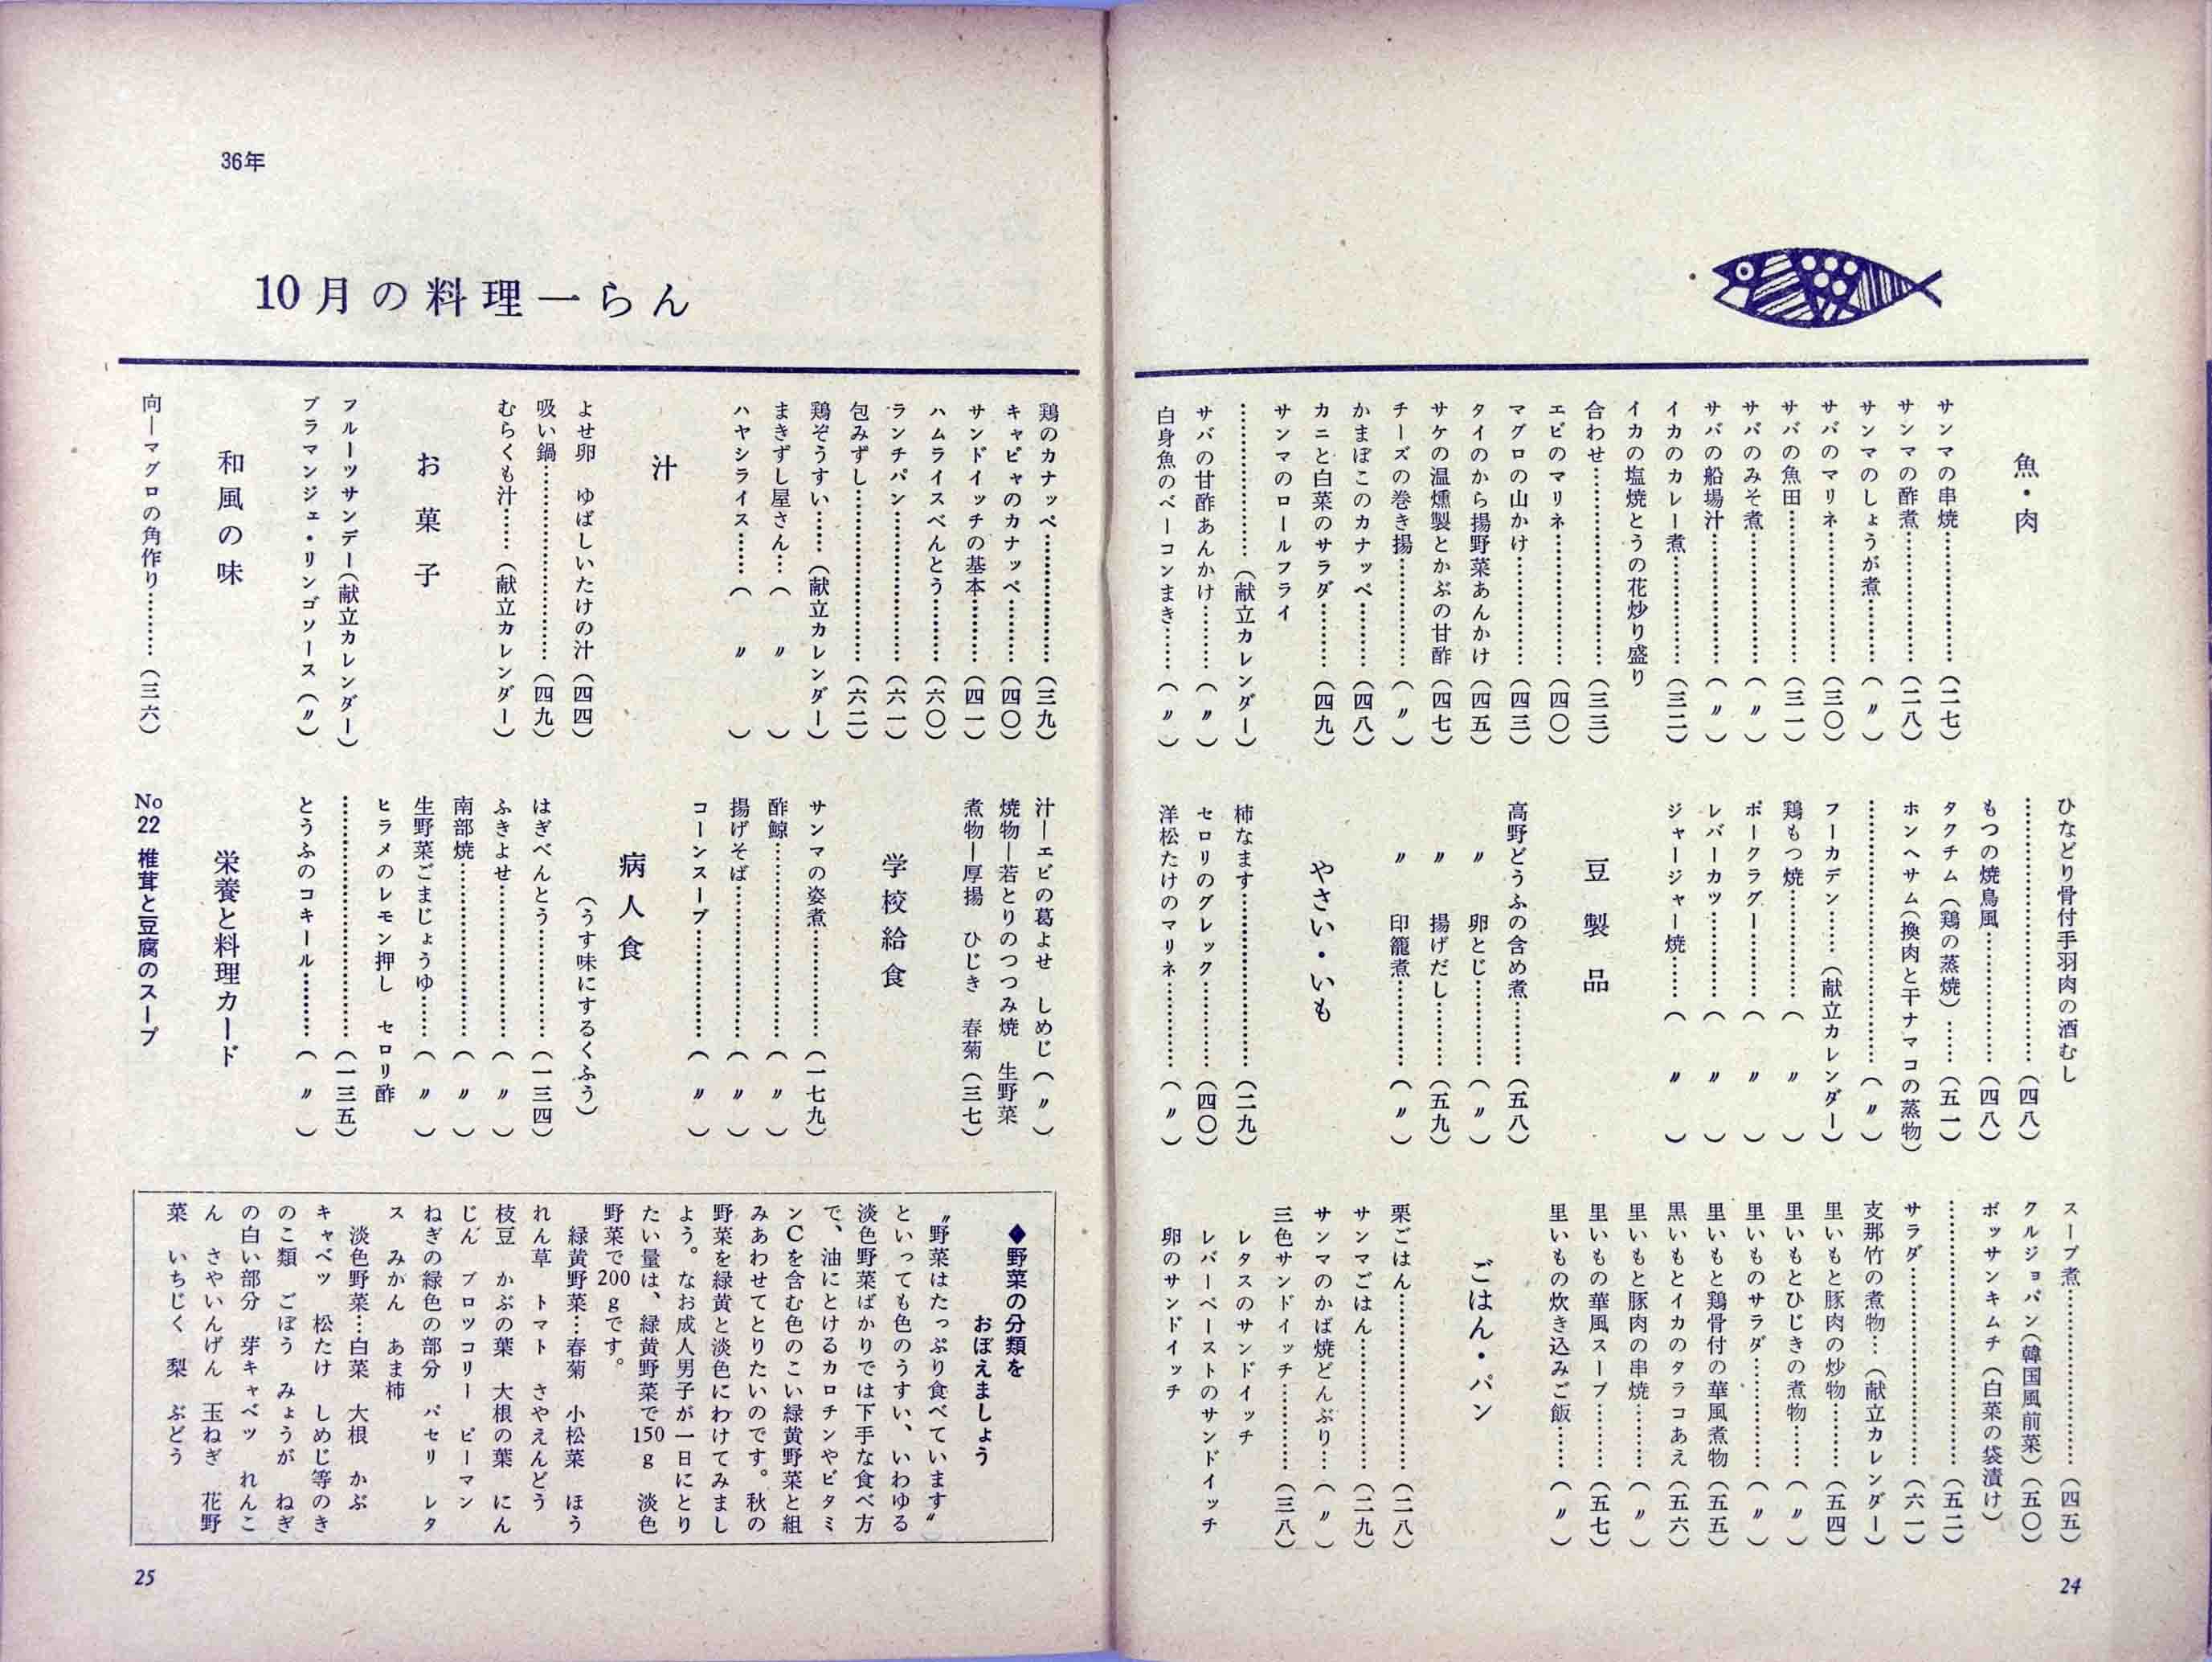 魚・肉
サンマの串焼………………（二七）
サンマの酢煮………………（二八）
サンマのしょうが煮………（〃）
サバのマリネ………………（三〇）
サバの魚田…………………（三一）
サバのみそ煮………………（〃）
サバの船場汁………………（〃）
イカのカレー煮……………（三二）
イカの塩焼とうの花炒り盛り
合わせ………………………（三三）
エビのマリネ………………（四〇）
マグロの山かけ……………（四三）
タイのから揚野菜あんかけ（四五）
サケの温燻製とかぶの甘酢（四七）
チーズの巻き揚……………（〃）
かまぼこのカナッペ………（四八）
カニと白菜のサラダ………（四九）
サンマのロールフライ
…………………（献立カレンダー）
サバの甘酢あんかけ………（〃）
白身魚のベーコンまき……（〃）
ひなどり骨付手羽肉の酒むし
………………………………（四八）
もつの焼鳥風………………（四八）
タクチム（鶏の蒸焼）……（五一）
ホンヘサム（換肉と干ナマコの蒸物）
………………………………（〃）
フーカデン……（献立カレンダー）
鶏もつ焼……………（〃）
ポークラグー………（〃）
レバーカツ…………（〃）
ジャージャー焼……（〃）
豆製品
高野どうふの含め煮………（五八）
〃　卵とじ…………（〃）
〃　揚げだし………（五九）
〃　印籠煮…………（〃）
やさい・いも
柿なます……………………（二九）
セロリのグレック…………（四〇）
洋松たけのマリネ…………（〃）
スープ煮……………………（四五）
クルジョパン（韓国風前菜）（五〇）
ボッサンキムチ（白菜の袋漬け）
………………………………（五二）
サラダ………………………（六一）
支那竹の煮物…（献立カレンダー）
里いもと豚肉の炒物………（五四）
里いもとひじきの煮物……（〃）
里いものサラダ……………（〃）
里いもと鶏骨付の華風煮物（五五）
黒いもとイカのタラコあえ（五六）
里いもと豚肉の串焼………（〃）
里いもの華風スープ………（五七）
里いもの炊き込みご飯……（〃）
ごはん・パン
栗ごはん……………………（二八）
サンマごはん………………（二九）
サンマのかば焼どんぶり…（〃）
三色サンドイッチ…………（三八）
レタスのサンドイッチ
レバーペーストのサンドイッチ
卵のサンドイッチ
24
36年
10月の料理一らん
鶏のカナッペ………………（三九）
キャビヤのカナッペ………（四〇）
サンドイッチの基本………（四一）
ハムライスべんとう………（六〇）
ランチパン…………………（六一）
包みずし……………………（六二）
鶏ぞうすい……（献立カレンダー）
まきずし屋さん…（〃）
ハヤシライス……（〃）
汁
よせ卵　ゆばしいたけの汁（四四）
吸い鍋………………………（四九）
むらくも汁……（献立カレンダー）
お菓子
フルーツサンデー（献立カレンダー）
ブラマンジェ・リンゴソース（〃）
和風の味
向―マグロの角作り………（三六）
汁―エビの葛よせ　しめじ（〃）
焼物―若とりのつつみ焼　生野菜
煮物―厚揚　ひじき　春菊（三七）
学校給食
サンマの姿煮………………（一七九）
酢鯨…………………………（〃）
揚げそば……………………（〃）
コーンスープ………………（〃）
病人食
（うす味にするくふう）
はぎべんとう………………（一三四）
ふきよせ……………………（〃）
南部焼………………………（〃）
生野菜ごまじょうゆ………（〃）
ヒラメのレモン押し　セロリ酢
………………………………（一三五）
とうふのコキール…………（〃）
栄養と料理カード
No22 椎茸と豆腐のスープ
◆野菜の分類を
おぼえましょう
〝野菜はたっぷり食べています〟
といっても色のうすい、いわゆる
淡色野菜ばかりでは下手な食べ方
で、油にとけるカロチンやビタミ
ンCを含む色のこい緑黄野菜と組
みあわせてとりたいのです。秋の
野菜を緑黄と淡色にわけてみまし
よう。なお成人男子が一日にとり
たい量は、緑黄野菜で150g　淡色
野菜で200gです。
緑黄野菜…春菊　小松菜　ほう
れん草　トマト　さやえんどう
枝豆　かぶの葉　大根の葉　にん
じん　ブロツコリー　ピーマン
ねぎの緑色の部分　パセリ　レタ
ス　みかん　あま柿
淡色野菜…白菜　大根　かぶ
キャベツ　松たけ　しめじ等のき
のこ類　ごぼう　みょうが　ねぎ
の白い部分　芽キャベツ　れんこ
ん　さやいんげん　玉ねぎ　花野
菜　いちじく　梨　ぶどう
25